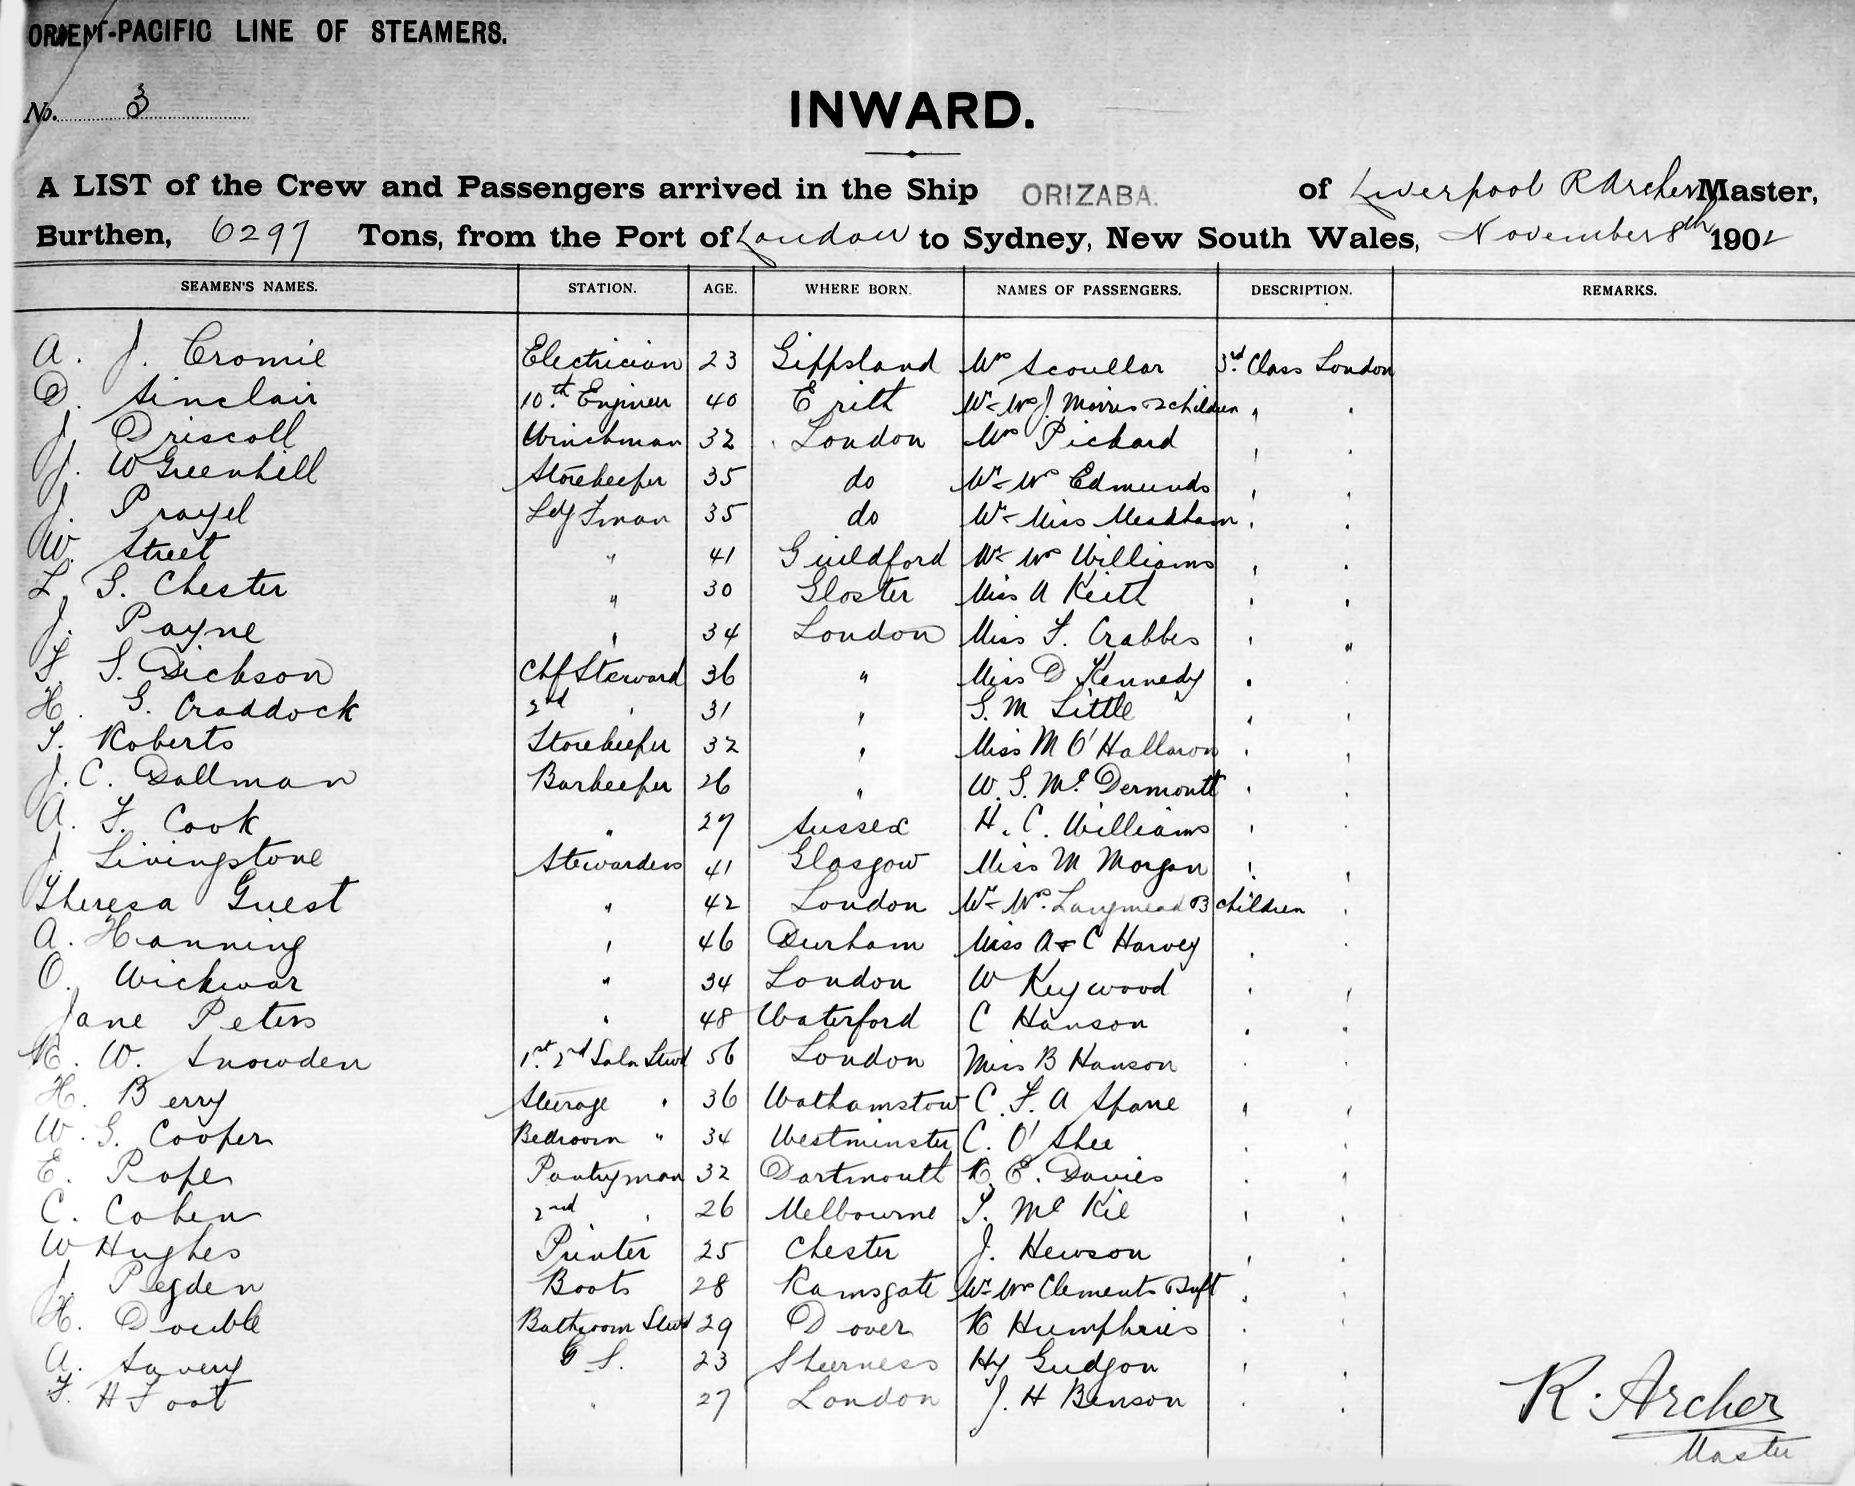 ORIENT-PACIFIC LINE OF STEAMERS.
No. 3
INWARD.
A LIST of the Crew and Passengers arrived in the Ship ORIZABA. of Liverpool R Archer Master,
Burthen, 6297 Tons, from the Port of London to Sydney, New South Wales, November 8th 1902
SEAMEN'S NAMES. STATION. AGE. WHERE BORN. NAMES OF PASSENGERS. DESCRIPTION. REMARKS.
A. J. Cromie Electrician 23 Gippsland Mrs Scoullar 3rd Class London
D. Sinclair 10.th Engineer 40 Erith Mr - Mrs J. Morris & 2 children " "
J. Driscoll Winchman 32 London Mrs Pickard " "
J. W Greenhill Storekeeper 35 do Mr - Mrs Edmunds " "
J. Prayel Ldg Fman 35 do Mr - Miss Meadham " "
W. Street " 41 Guildford Mr - Mrs Williams " "
L. G. Chester " 30 Gloster Miss A Keith " "
J. Payne " 34 London Miss F. Crabbes " "
F. S. Dickson Chf Steward 36 " Miss D Kennedy " "
H. G. Craddock 2nd " 31 " G. M Little " "
T. Roberts Storekeeper 32 " Miss M O'Halloron " "
J. C. Dollman Barkeeper 26 " W. G. Mc Dermontt " "
A. F. Cook " 27 Sussex H. C. Williams " "
J. Livingstone Stewardess 41 Glasgow Miss M Morgan " "
Theresa Guest " 42 London Mr - Mrs. Langmead & 3 children "
A. Hanning " 46 Durham Miss A & C Harvey " "
O. Wickwar " 34 London W Keywood " "
Jane Peters " 48 Waterford C Hanson " "
R. W. Snowden 1st. 2nd Saln Stwd 56 London Miss B Hanson " "
H. Berry Steerage " 36 Wathamstow C. F. A Spane " "
W. G. Cooper Bedroom " 34 Westminster C. O'Shee " "
E. Roper Pantryman 32 Dartmouth R. E. Davies " "
C. Cohen 2nd " 26 Melbourne T. Mc Kie " "
W Hughes Printer 25 Chester J. Hewson " "
J. Pegden Boots 28 Ramsgate Mr - Mrs Clements & Inft " "
H. Double Bathroom Stwd 29 Dover R Humphries " "
A. Savery G S. 23 Sheerness Hy Gudgon " "
F. H Foot " 27 London J. H Benson " "
R. Archer
Master